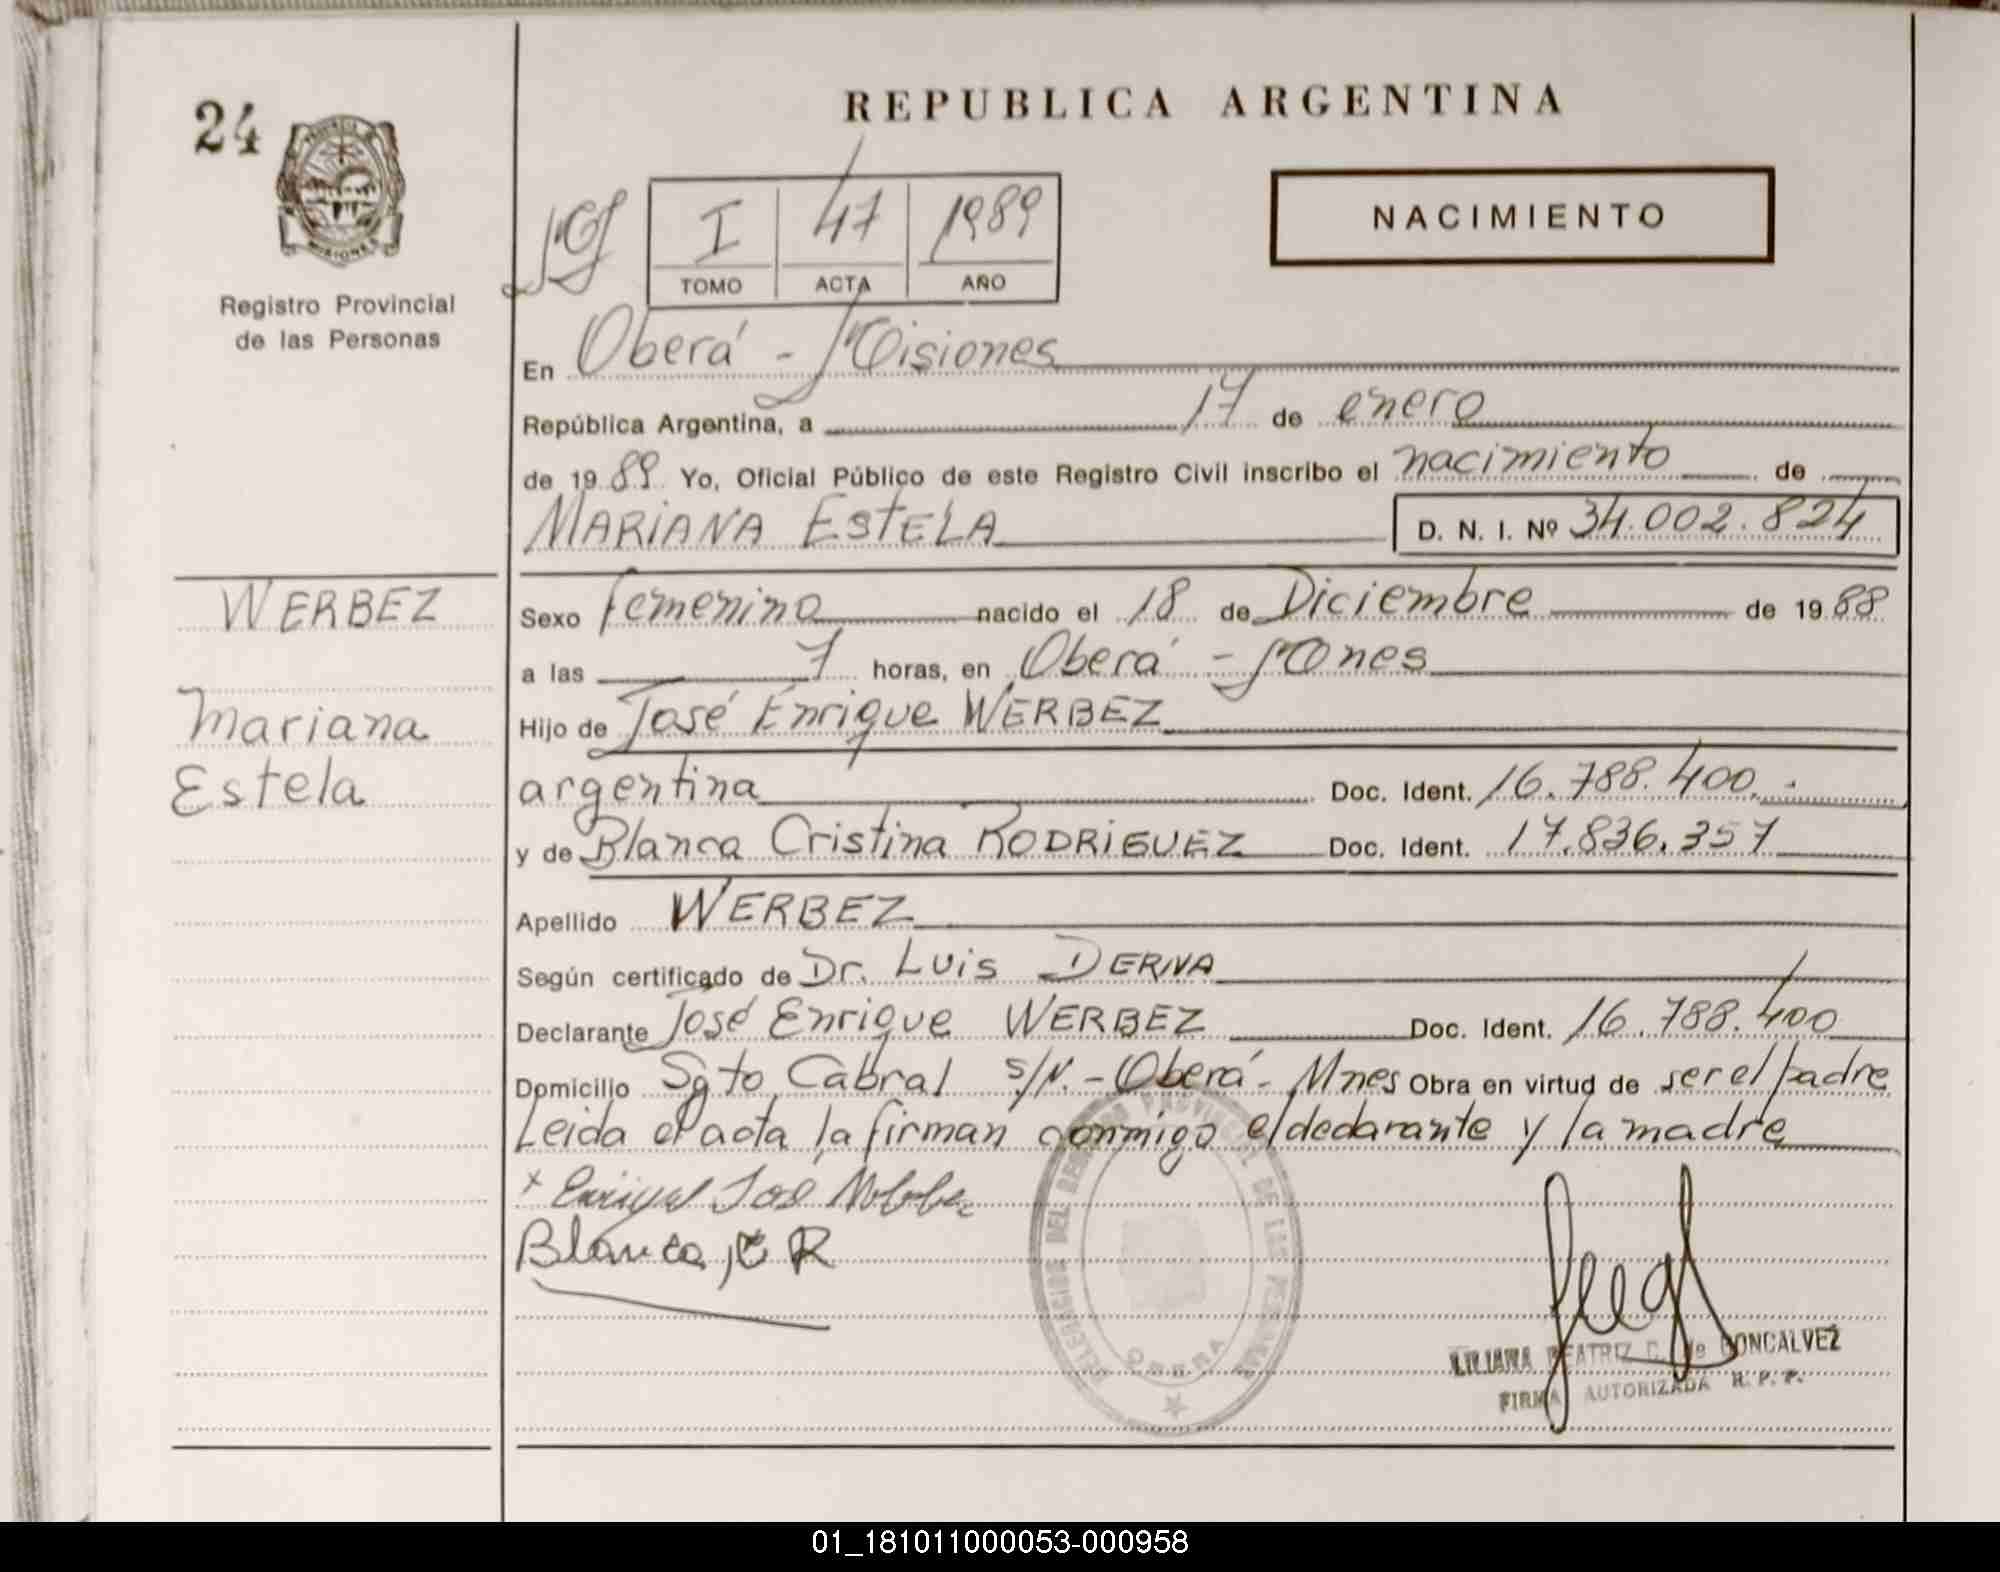 24
REPUBLICA ARGENTINA
NACIMIENTO
I 47 1989
TOMO ACTA AÑO
Registro Provincial
de las Personas
En Oberá - Misiones
República Argentina, a 17 de enero
de 1989 Yo, Oficial Público de este Registro Civil inscribo el nacimiento de
MARIANA ESTELA D. N. I. Nº 34.002.824
WERBEZ
Mariana
Estela
Sexo femenino nacido el 18 de Diciembre de 1988
a las 7 horas, en Oberá - Mnes
Hijo de José Enrique WERBEZ
argentina Doc. Ident. 16.788.400.-
y de Blanca Cristina RODRIGUEZ Doc. Ident. 17.836.357
Apellido WERBEZ
Según certificado de Dr. Luis DERNA
Declarante José Enrique WERBEZ Doc. Ident. 16.788.400
Domicilio Sgto Cabral s/N. - Oberá - Mnes Obra en virtud de ser el padre
Leida el acta la firman conmigo el declarante y la madre
Blanca, C R
DELEGACION DEL REGISTRO PROVINCIAL DE LAS PERSONAS
OBERA
LILIANA BEATRIZ C. de GONCALVEZ
FIRMA AUTORIZADA R. P. P.
01_181011000053-000958